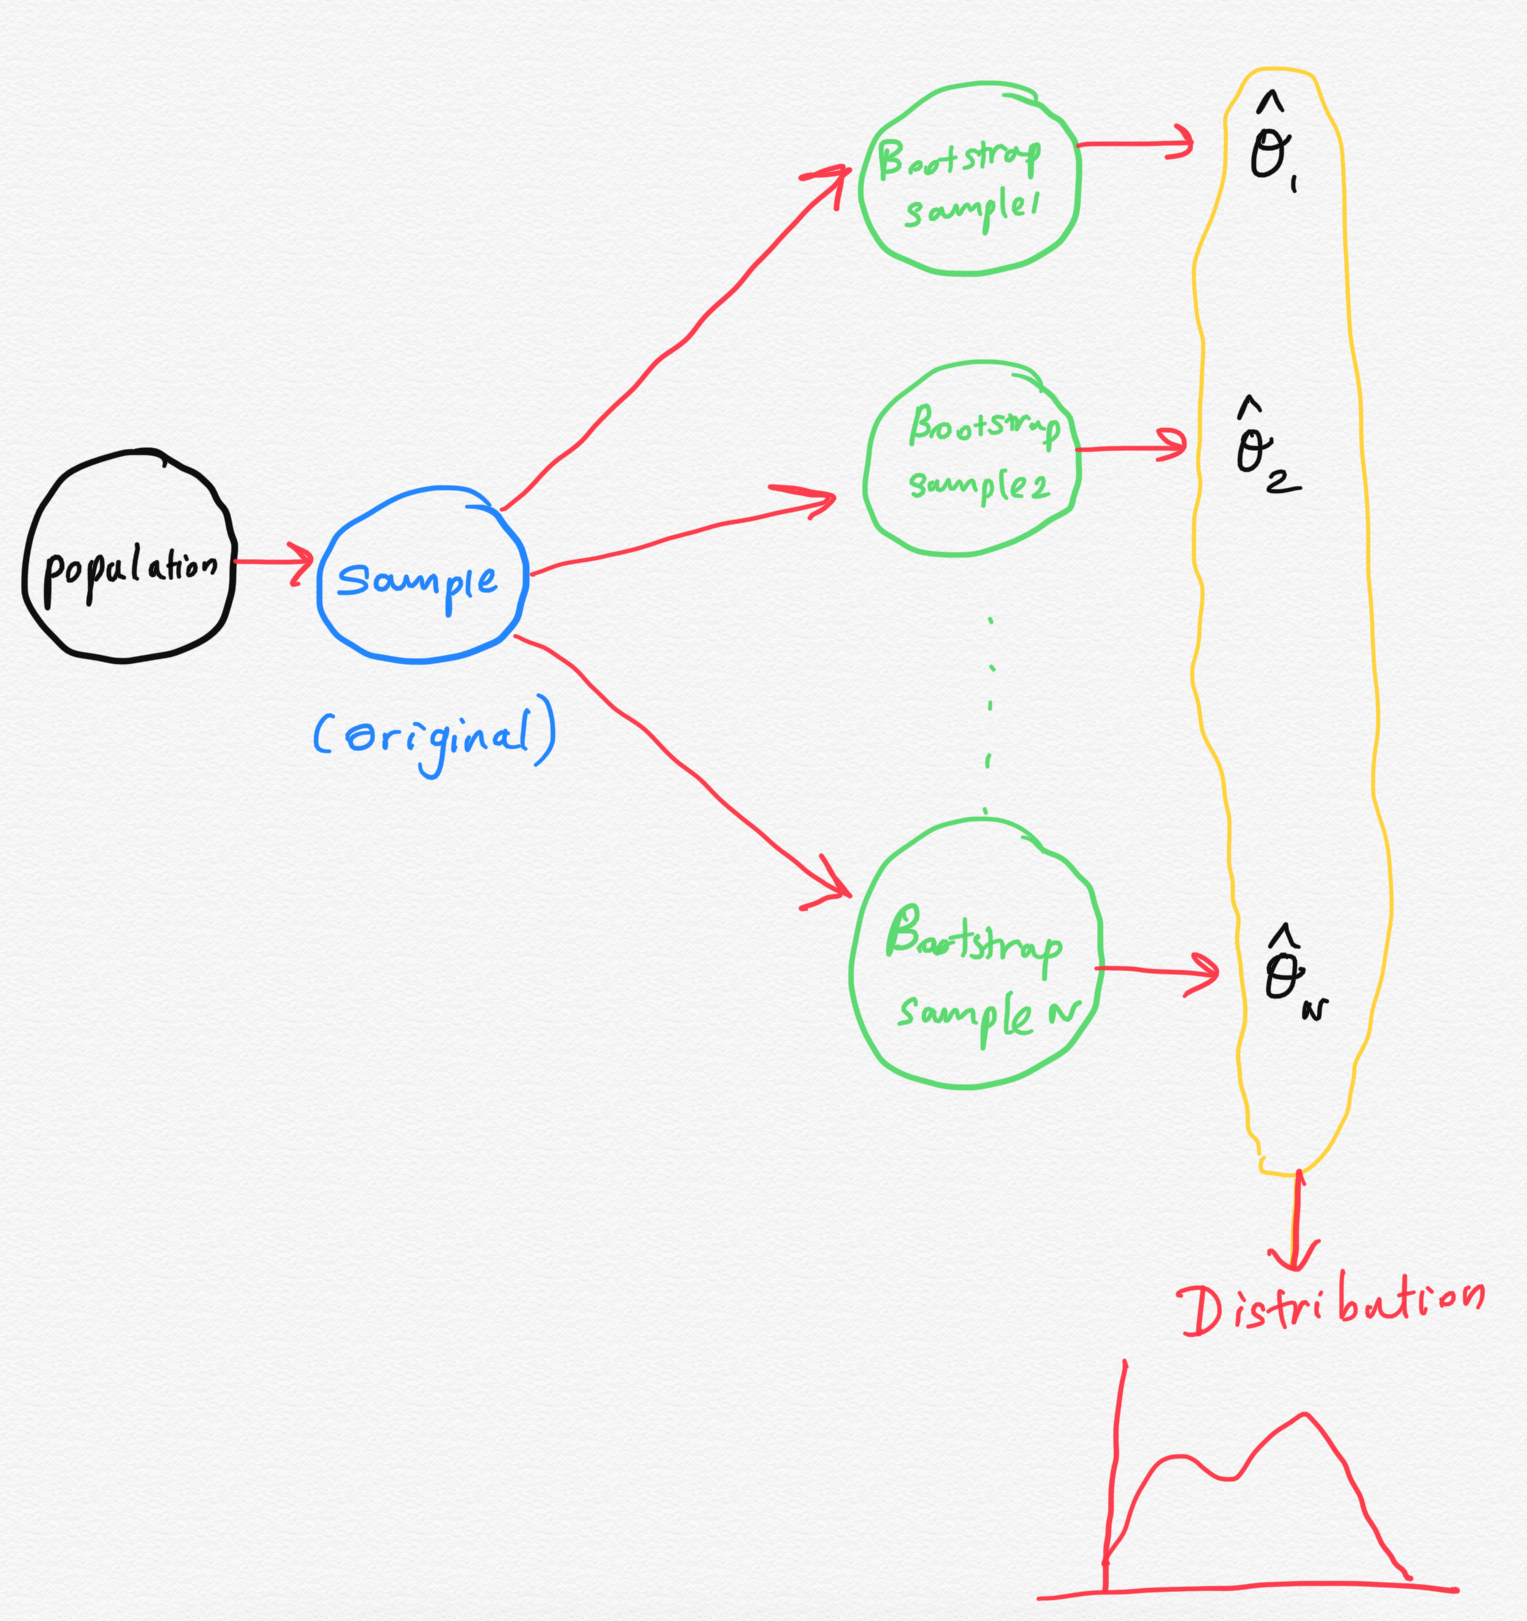 population
Sample
(original)
Bootstrap
sample1
θ̂₁
Bootstrap
sample2
θ̂₂
Bootstrap
sample N
θ̂N
Distribution